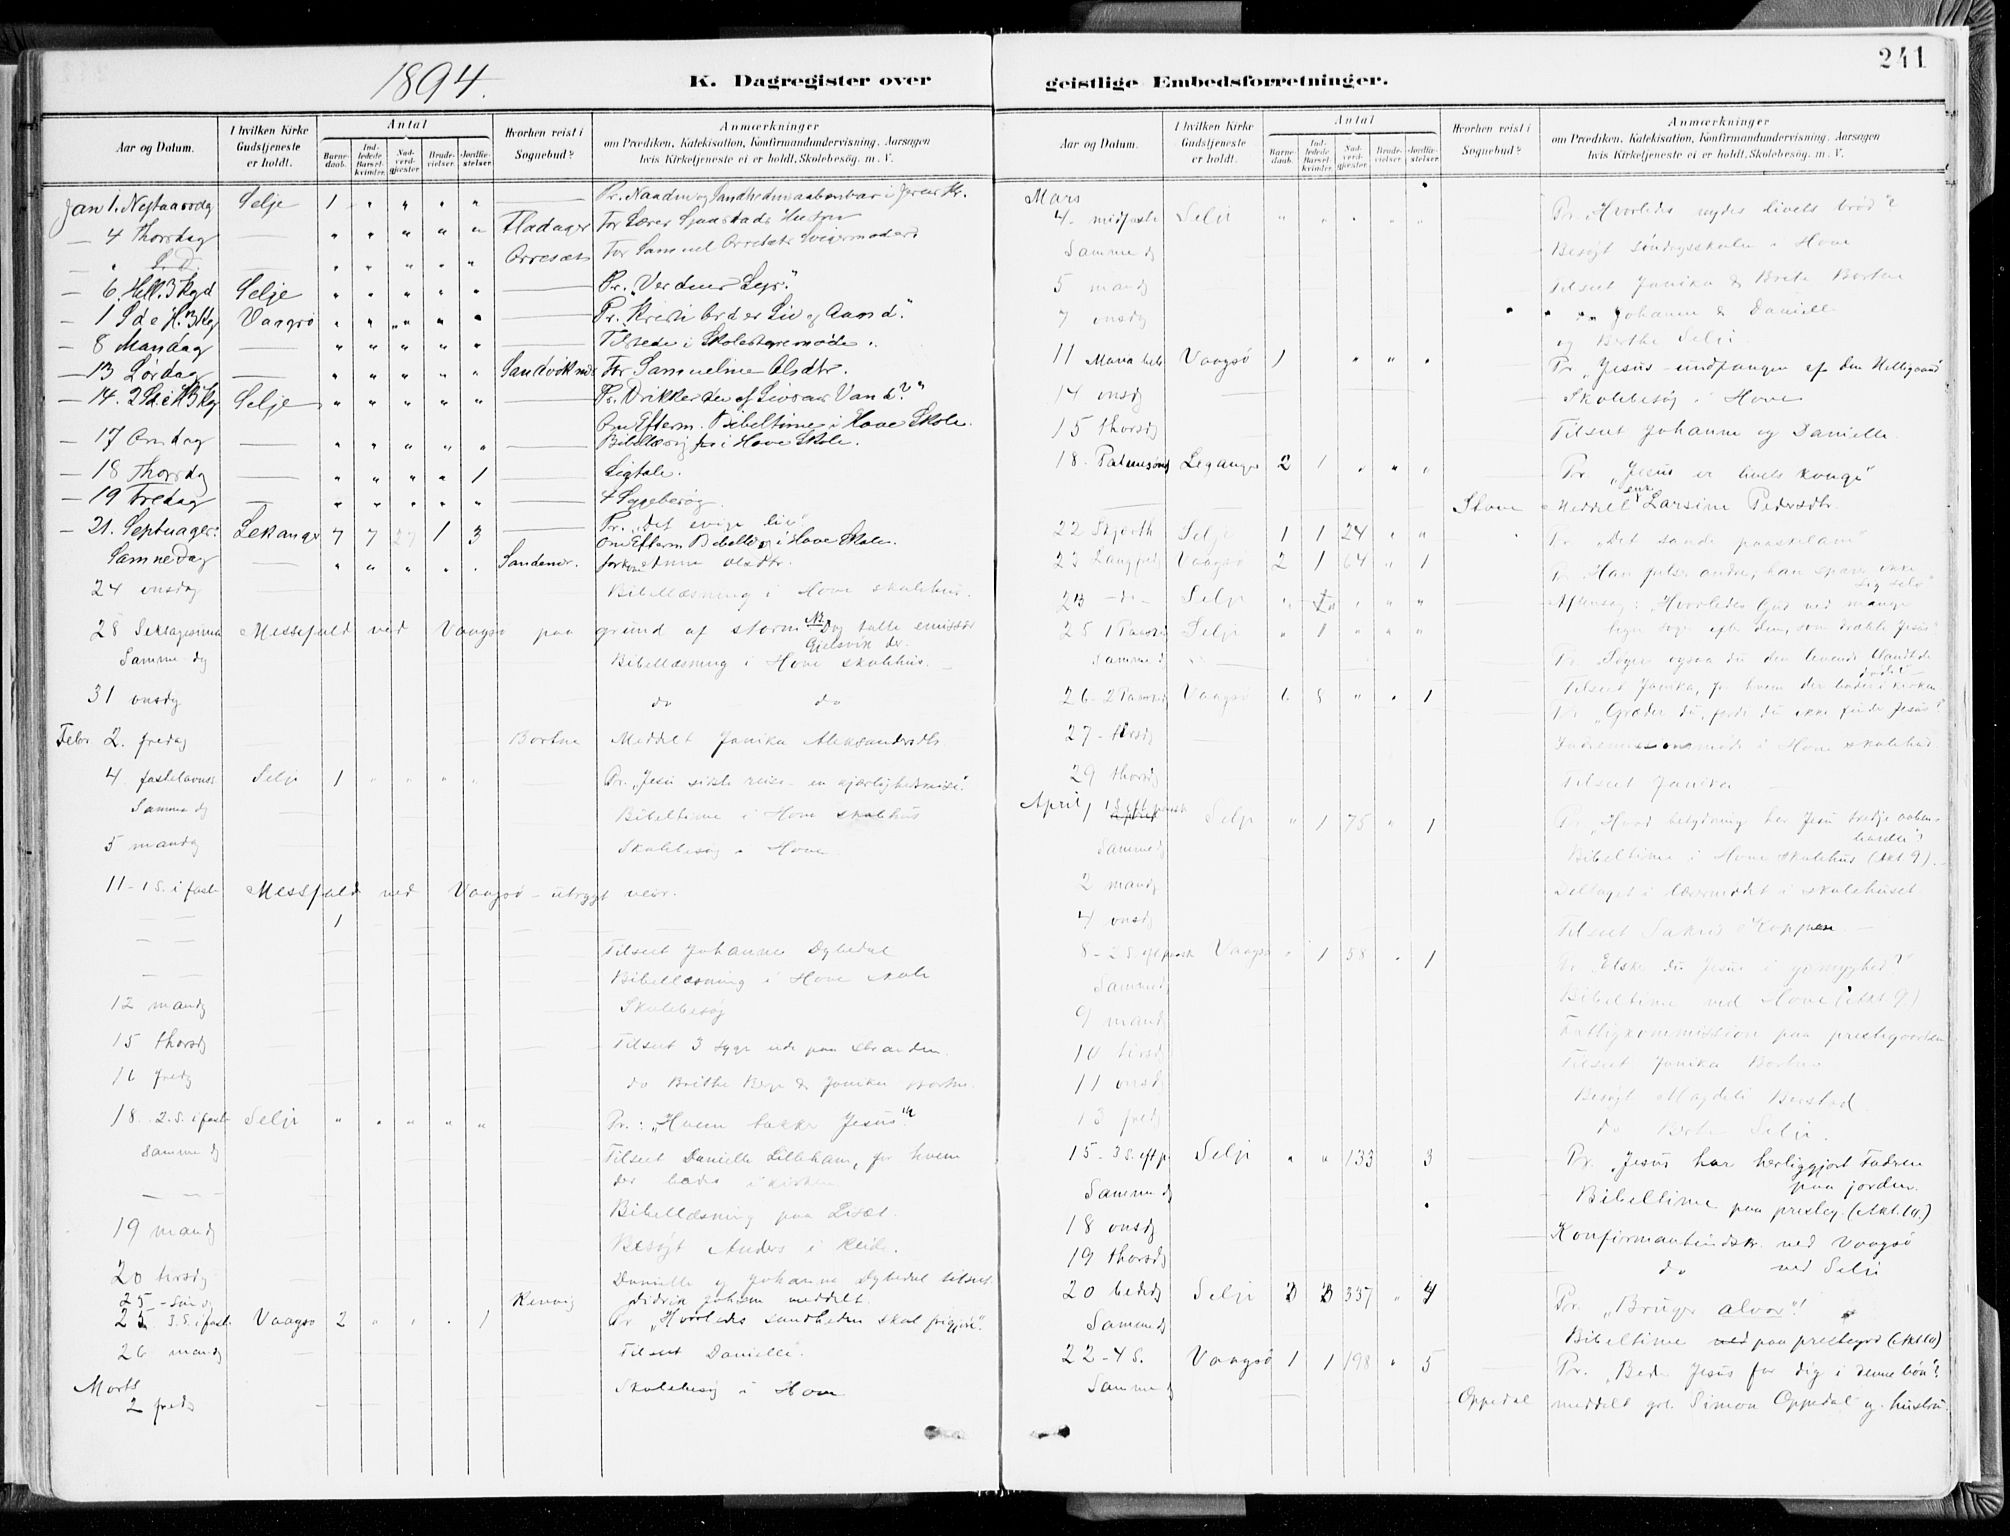 1894.
K. Dagregister over
geistlige Embedsforretninger.
241
Aar og Datum.
I hvilken Kirke Gudstjeneste er holdt.
Antal
Barnedaab.
Indledede Barselkvinder.
Nadverdgjester.
Brudevielser.
Jordfæstelser.
Hvorhen reist i Sognebud?
Anmærkninger
om Prædiken, Katekisation, Konfirmandundervisning, Aarsagen
hvis Kirketjeneste ei er holdt, Skolebesøg. m. V.
Jan 1. Nytaarsdag Selje 1 " " " "
— 4 Thorsdag — " " " " " Flødager For Lærer
— " S. D. — " " " " " Orresæt For Samuel Orresæts Svigermoder
— 6. Hell. 3 Kgd Selje " " " " " — Pr. „Verdens Lys."
— 1 S d e H. 3 Kg Vaagsø " " " " " — Pr.
— 8 Mandag — " " " " " — Tilstede i Skolestyremøde.
— 13 Lørdag — " " " " " Sandvik For Samueline Olsdtr.
— 14. 2 S d e H 3 Kg Selje " " " " " — Pr. Drikker du af Livsens Vand?"
Om Efterm. Bibeltime i Hove Skole.
— 17 Onsdag — " " " " " — i Hove Skole.
— 18 Thorsdag — " " " " 1 — Ligtale.
— 19 Fredag — " " " " " — 4 Sygebesøg.
— 21. Septuages: Lekanger 7 7 27 1 3 — Pr. „Det evige liv"
Om Efterm. i Hove Skole.
Samme Dag " " " " " Sandene. for Anne Olsdtr.
24 onsdag Bibellæsning i Hove skolehus.
28 Messefald ved Vaagsø paa grund af storm talte emissær
Gjelsvik
Samme dg Bibellæsning i Hove skolehus. —
31 onsdg do do
Febr 2. fredag Bortne Meddelt Janika Aleksandersdtr.
4. fastelavnss Selje 1 " " " " Pr. „Jesu sidste reise - en kjærlighedsreise"
Samme dg Bibeltime i Hove skolehus
5 mandag Skolebesøg i Hove
11 - 1 S. i faste Messefald ved Vaagsø - utrygt veir.
— — 1
— — Tilseet Johanne Dybedal
— — Bibellæsning i Hove skole
12 mandg Skolebesøg
15 thorsdg Tilseet 3 syge ude paa stranden.
16 fredg do Brithe & Janika Bortne.
18. 2. S. i faste Selje " " " " " Pr.: „Hvem tækkes Jesus?"
Samme dg Tilseet Danielle Lilleham, for hvem
der bades i kirken
— — — Bibellæsning paa
19 mandg Besøgt Anders i Leide.
20 tirsdg Danielle og Johanne Dybedal tilseet
25 — Søndg Rervig Didrik meddelt.
25. 3. S. i faste Vaagsø 2 " " " 1 Pr. „Hvorledes sandheden skal frigjøre".
26 mandg Tilseet Danielle.
Marts
2 fredg Skolebesøg i Hove
Aar og Datum.
I hvilken Kirke Gudstjeneste er holdt.
Antal
Barnedaab.
Indledede Barselkvinder.
Nadverdgjester.
Brudevielser.
Jordfæstelser.
Hvorhen reist i Sognebud?
Anmærkninger
om Prædiken, Katekisation, Konfirmandundervisning, Aarsagen
hvis Kirketjeneste ei er holdt, Skolebesøg. m. V.
Mars
4. midfaste Selje " " " " " Pr. Hvorledes nydes livets brød?
Samme dg Besøgt søndagsskolen i Hove
5 mandg Tilseet Janika & Brite Bortne
7 onsdg " " Johanne & Danielle
og Berthe Selje
11 Maria beb. Vaagsø 1 " " " Pr. „Jesus undfangen af den Helligaand"
14 onsdg Skolebesøg i Hove
15 thorsdg Tilseet Johanne og Danielle.
18. Palmesøndg Leganger 2 1 " " " Pr. „Jesus er livets konge"
— Stove Meddelt enke Larsine Pedersdtr.
22 Skjærth Selje 1 1 24 " " Pr. „Det sande paaskelam"
23 Langfred Vaagsø 2 1 64 " 1 Pr. Han frelste andre, han sparte ikke
sig selv"
23 - do - Selje " " " " Aftensang: „Hvorledes Gud ved mange
25 1 Paaske Selje " 1 " " " tegn søger efter dem, som dræbte Jesus"
Samme dg Pr. Søger ogsaa du den levende blandt de
døde?
26 - 2 Paaske Vaagsø 6 8 " " 1 Tilseet Janika, for hvem der bades i kirken
Pr. „Græder du, fordi du ikke finder Jesus?"
27 - tirsdg i Hove skolehus
29 thorsdg Tilseet Janika —
April 1 1 S. eft. paask Selje " 1 75 " 1 Pr. „Hvad betydning har Jesu tredje aaben-
barelse?
Samme dg Bibeltime i Hove skolehus (Akt 9).
2 mandg Deltaget i læsemødet i skolehuset
4 onsdg Tilseet
8 - 2 S. eft paask Vaagsø " 1 58 " 1 Pr. Elsker du Jesus i ydmyghed?"
Samme dg Bibeltime ved Hove (Akt 9)
9 mandg Fattigkommission paa prestegaarden
10 tirsdg Tilseet Janika Bortne
11 onsdg Besøgt Magdeli Berstad
13 fredg do Berte Selje.
15 - 3 S. eft p Selje " " 133 3 — Pr. „Jesus har herliggjort Fadren
paa jorden.
Samme dg Bibeltime paa presteg. (Akt. 10.)
18 onsdg Konfirmantindskr. ved Vaagsø
19 thorsdg do ved Selje
20 bededg Selje 3 3 337 " 4 Pr. „Bruger alvor"!
Samme dg Bibeltime paa prestegrd (Akt 10)
22 - 4 S. Vaagsø 1 1 198 " 5 Pr. „Beder Jesus for dig i denne bøn"?
Samme dg Oppedal meddelt gbr. Simon Oppedal og hustru.